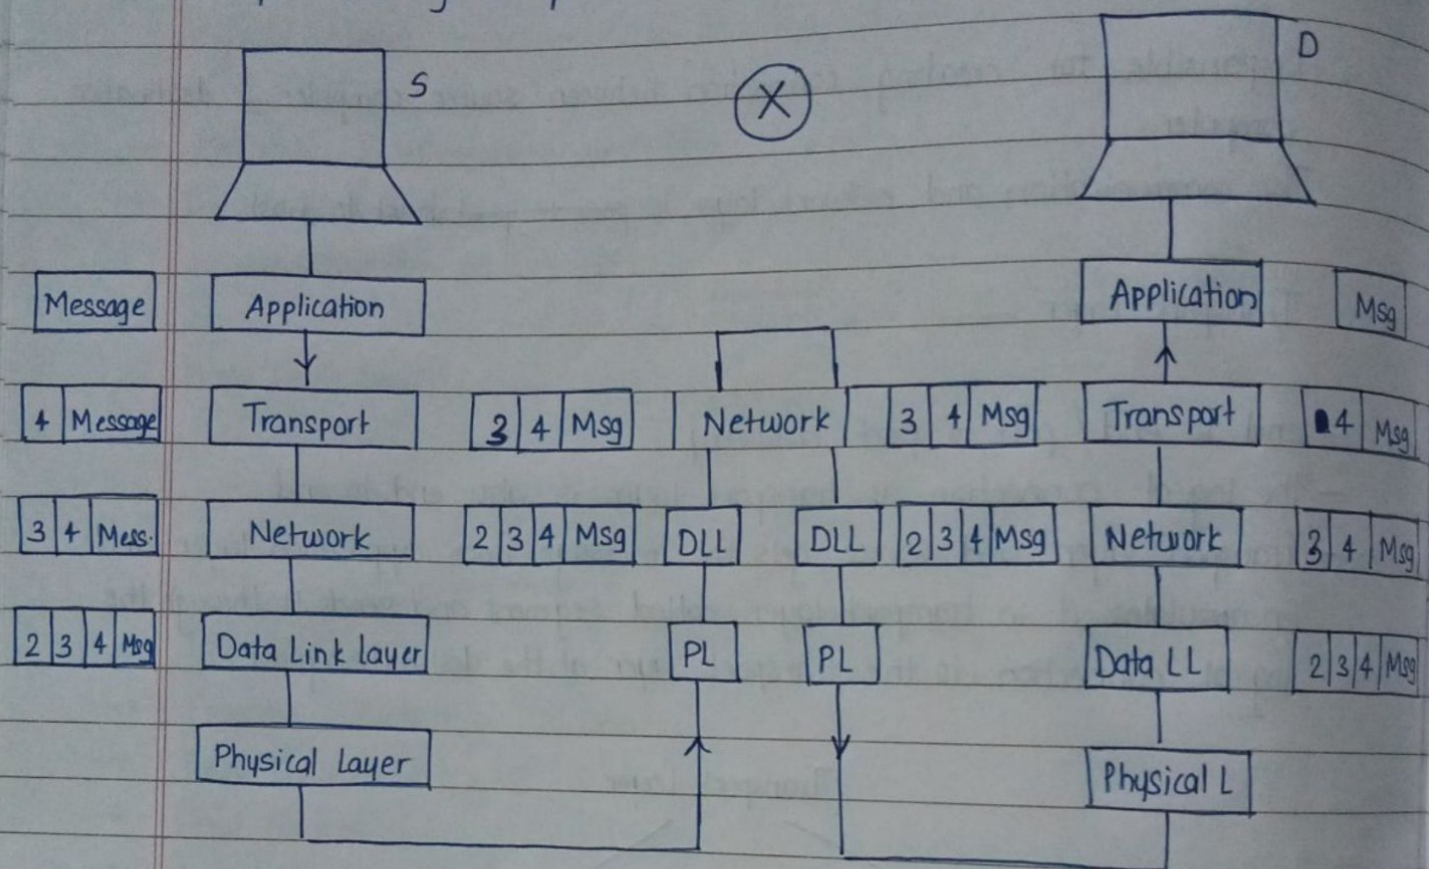 S
D
X
Message
Application
Application
Msg
4 Message
Transport
3 4 Msg
Network
3 4 Msg
Transport
4 Msg
3 4 Mess.
Network
2 3 4 Msg
DLL
DLL
2 3 4 Msg
Network
3 4 Msg
2 3 4 Msg
Data Link layer
PL
PL
Data LL
2 3 4 Msg
Physical Layer
Physical L